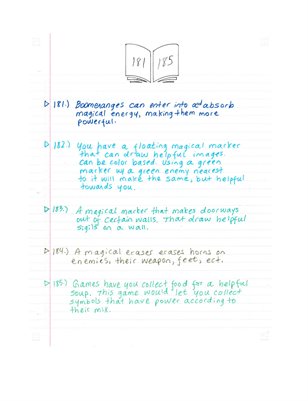 181 185
▷ 181.) Boomeranges can enter into absorb
magical energy, making them more
powerful.
▷ 182.) You have a floating magical marker
that can draw helpful images
can be color based. Using a green
marker w/ a green enemy nearest
to it will make the same, but helpful
towards you.
▷ 183.) A magical marker that makes doorways
out of certain walls. That draw helpful
sigils on a wall.
▷ 184.) A magical erases erases horns on
enemies, their weapon, feet, ect.
▷ 185.) Games have you collect food for a helpful
soup. This game would let you collect
symbols that have power according to
their mix.